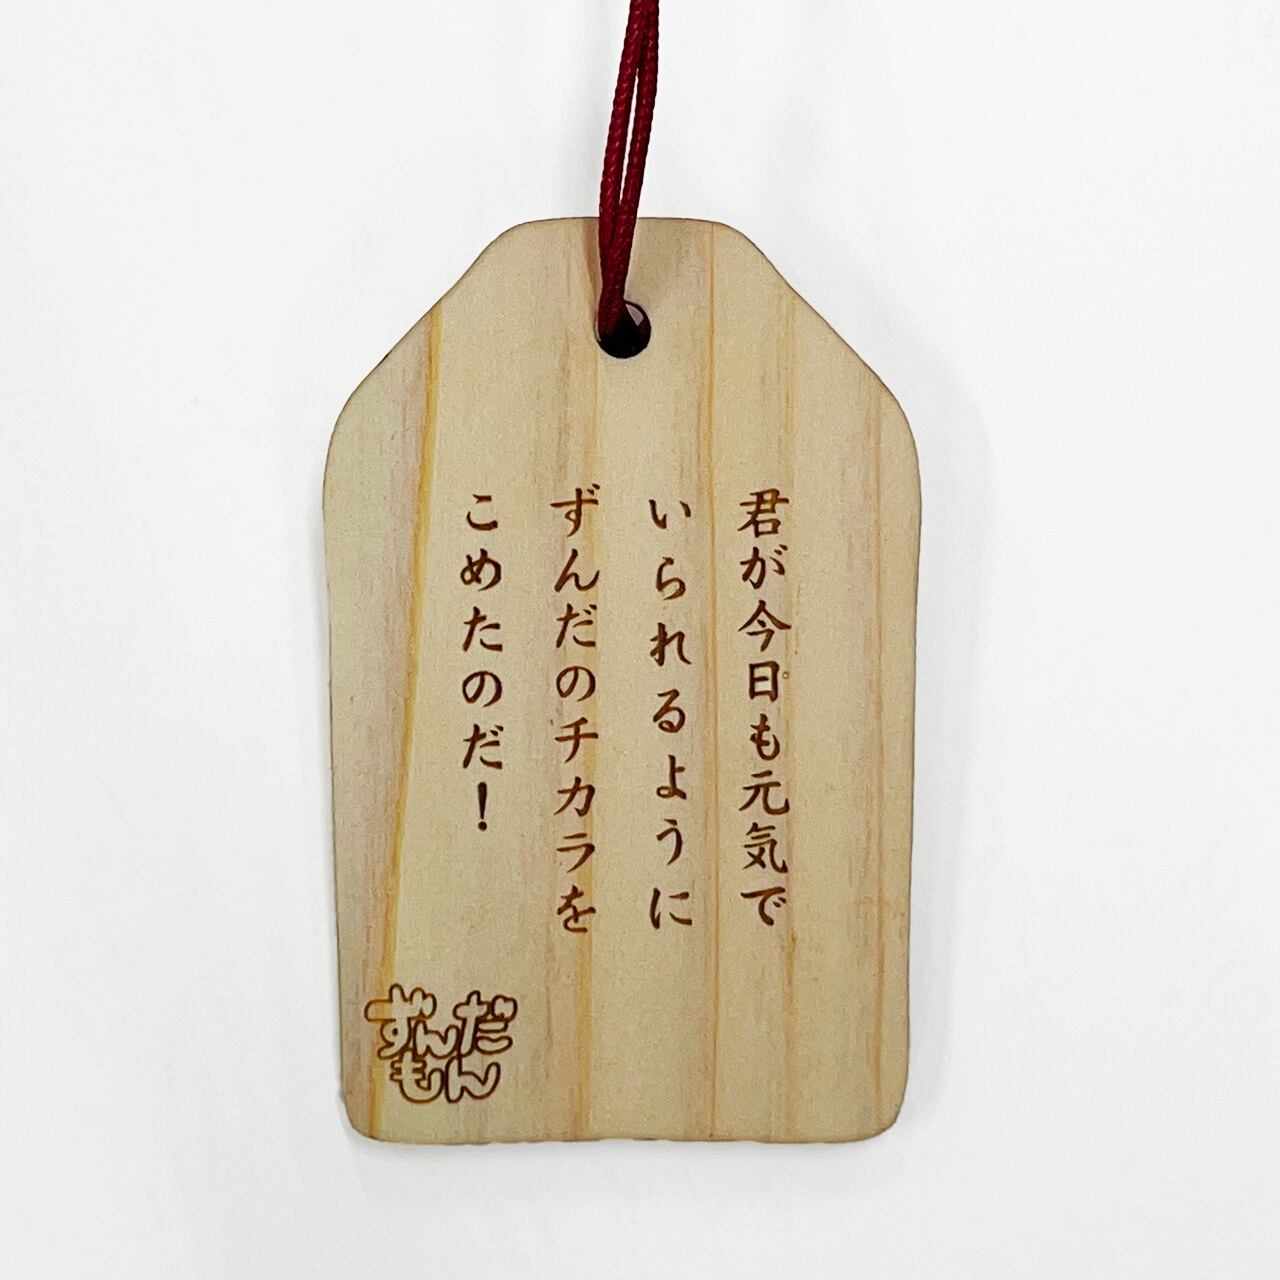 君が今日も元気で
いられるように
ずんだのチカラを
こめたのだ！
ずんだ
もん